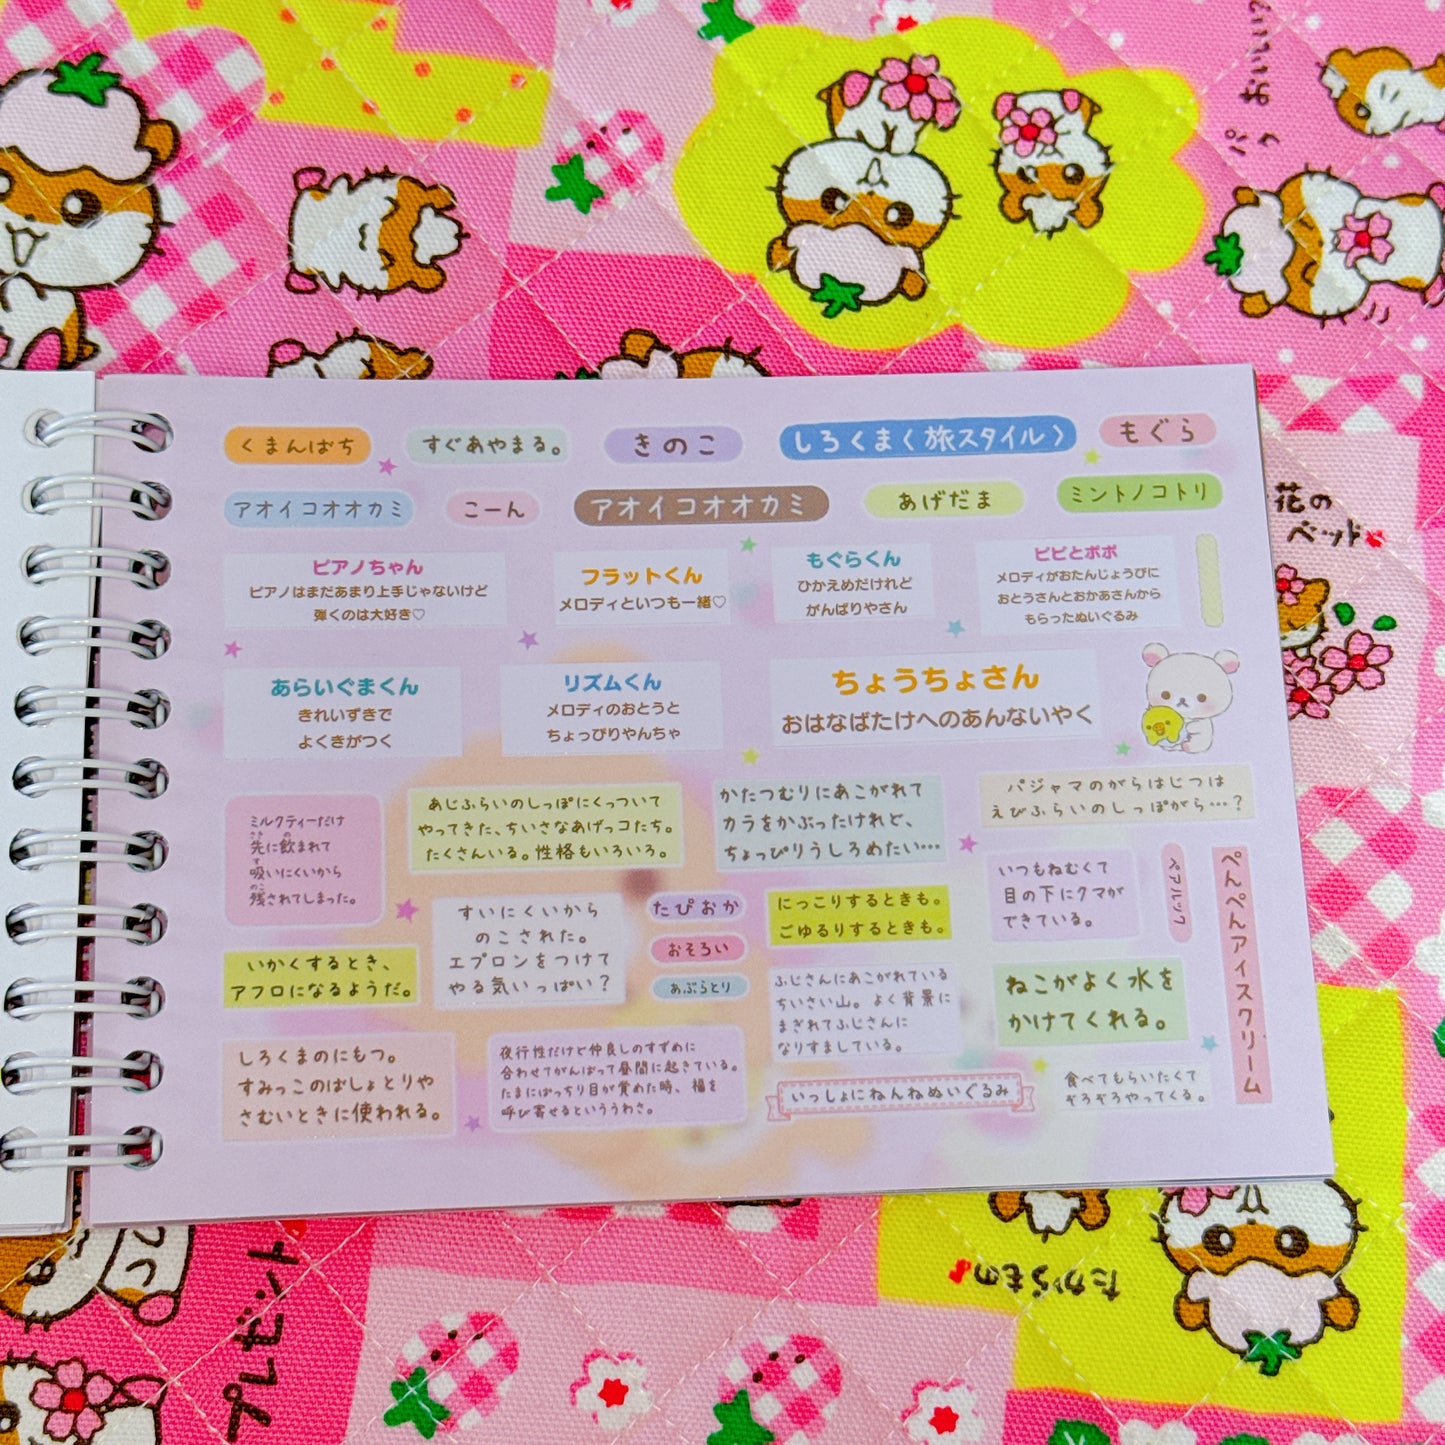 パ
ク
おいしい?
花の
ベッド
くまんばち
すぐあやまる。
きのこ
しろくまく旅スタイル〉
もぐら
アオイコオオカミ
こーん
アオイコオオカミ
あげだま
ミントノコトリ
ピアノちゃん
ピアノはまだあまり上手じゃないけど
弾くのは大好き♡
フラットくん
メロディといつも一緒♡
もぐらくん
ひかえめだけれど
がんばりやさん
ピピとポポ
メロディがおたんじょうびに
おとうさんとおかあさんから
もらったぬいぐるみ
あらいぐまくん
きれいずきで
よくきがつく
リズムくん
メロディのおとうと
ちょっぴりやんちゃ
ちょうちょさん
おはなばたけへのあんないやく
ミルクティーだけ
先に飲まれて
吸いにくいから
残されてしまった。
あじふらいのしっぽにくっついて
やってきた、ちいさなあげっコたち。
たくさんいる。性格もいろいろ。
かたつむりにあこがれて
カラをかぶったけれど、
ちょっぴりうしろめたい…
パジャマのがらはじつは
えびふらいのしっぽがら…?
すいにくいから
のこされた。
エプロンをつけて
やる気いっぱい?
たぴおか
おそろい
あぶらとり
にっこりするときも。
ごゆるりするときも。
いつもねむくて
目の下にクマが
できている。
ペアルック
ぺんぺんアイスクリーム
いかくするとき、
アフロになるようだ。
ふじさんにあこがれている
ちいさい山。よく背景に
まぎれてふじさんに
なりすましている。
ねこがよく水を
かけてくれる。
しろくまのにもつ。
すみっこのばしょとりや
さむいときに使われる。
夜行性だけど仲良しのすずめに
合わせてがんばって昼間に起きている。
たまにぱっちり目が覚めた時、福を
呼び寄せるといううわさ。
いっしょにねんねぬいぐるみ
食べてもらいたくて
ぞろぞろやってくる。
プレゼント
たからもの♪